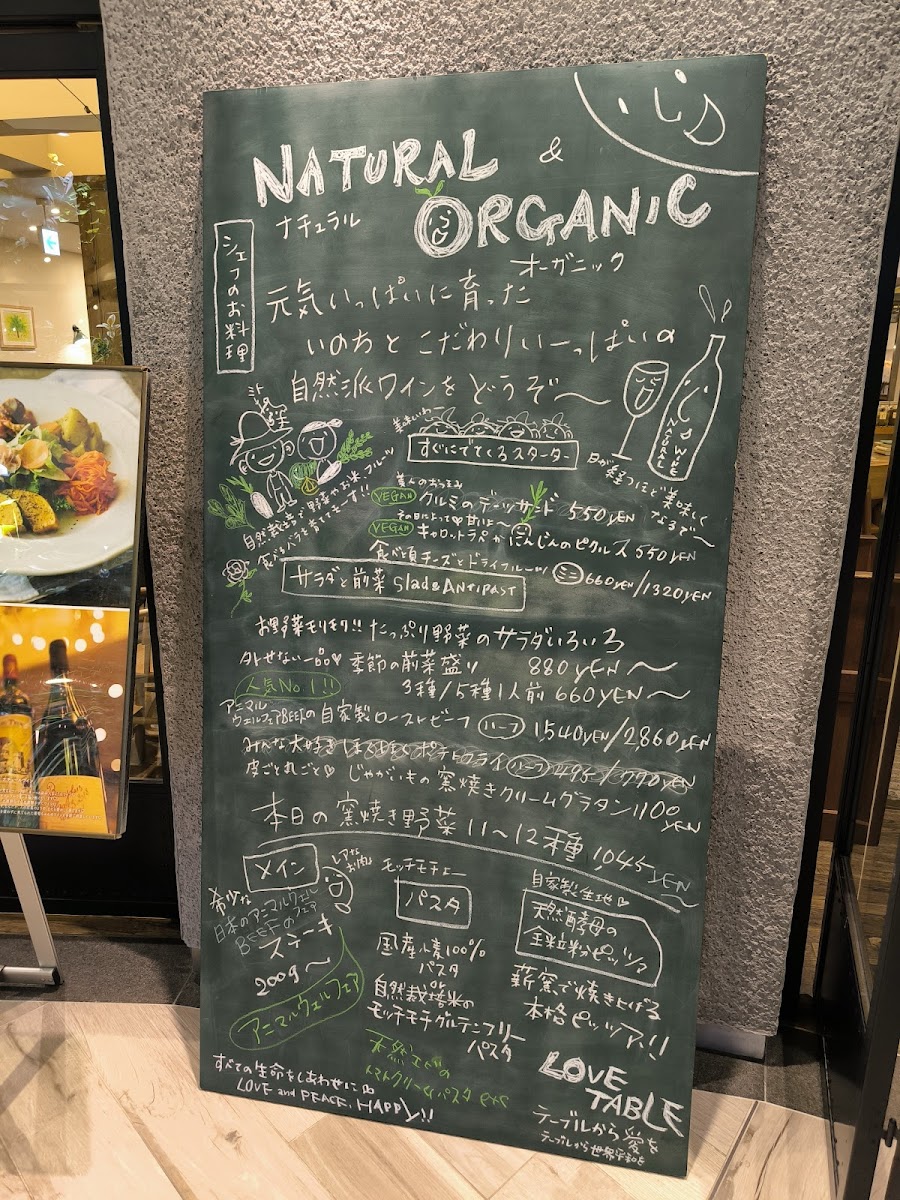 NATURAL &
ナチュラル
ORGANIC
オーガニック
シェフのお料理
元気いっぱいに育った
いのちと こだわりいーっぱいの
自然派ワインを どうぞ〜
NATURAL WINE
日が経つほど美味しく
なるぞ〜
自然栽培で野菜やお米、フルーツ
美味いわー
すぐにでてくるスターター
VEGAN クルミのデーツサンド 550YEN
VEGAN キャロットラペか にんじんのピクルス 550YEN
食べ頃チーズとドライフルーツ ミニ 660YEN/1320YEN
サラダと前菜 Slad&ANTIPAST
お野菜モリモリ!! たっぷり野菜のサラダいろいろ
880YEN〜
外せない一品♡ 季節の前菜盛り
3種/5種 1人前 660YEN〜
人気No.1!!
アニマル
ウェルフェアBEEFの自家製ローストビーフ ハーフ 1540YEN/2,860YEN
みんな大好き ポテトフライ ハーフ
皮ごと丸ごと♡ じゃがいもの窯焼きクリームグラタン 1100
YEN
本日の窯焼き野菜 11〜12種 1045YEN〜
メイン
レアな
お肉
希少な
日本のアニマルウェル
BEEFのフェア
ステーキ
200g〜
アニマルウェルフェア
モッチモチよー
パスタ
国産小麦100%
パスタ
or
自然栽培米の
モッチモチグルテンフリー
パスタ
天然エビの
トマトクリームパスタ etc
自家製生地♡
天然酵母の
全粒粉ピッツァ
薪窯で焼き上げる
本格ピッツァ!!
すべての生命をしあわせに
LOVE and PEACE, HAPPY!!
LOVE
TABLE
テーブルから愛を
テーブルから世界平和を